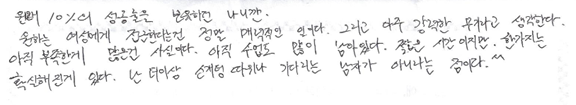 원래 10%의 성공률은 보장하던 나니깐.
원하는 여성에게 접근한다는건 정말 매력적인 언어다. 그리고 아주 강력한 무기라고 생각한다.
아직 부족한게 많은건 사실이다. 아직 수업도 많이 남아있다. 짧은 시간 이지만. 한가지는
확실해진게 있다. 난 더이상 손계정 따위나 기다리는 남자가 아니라는 점이다.^^